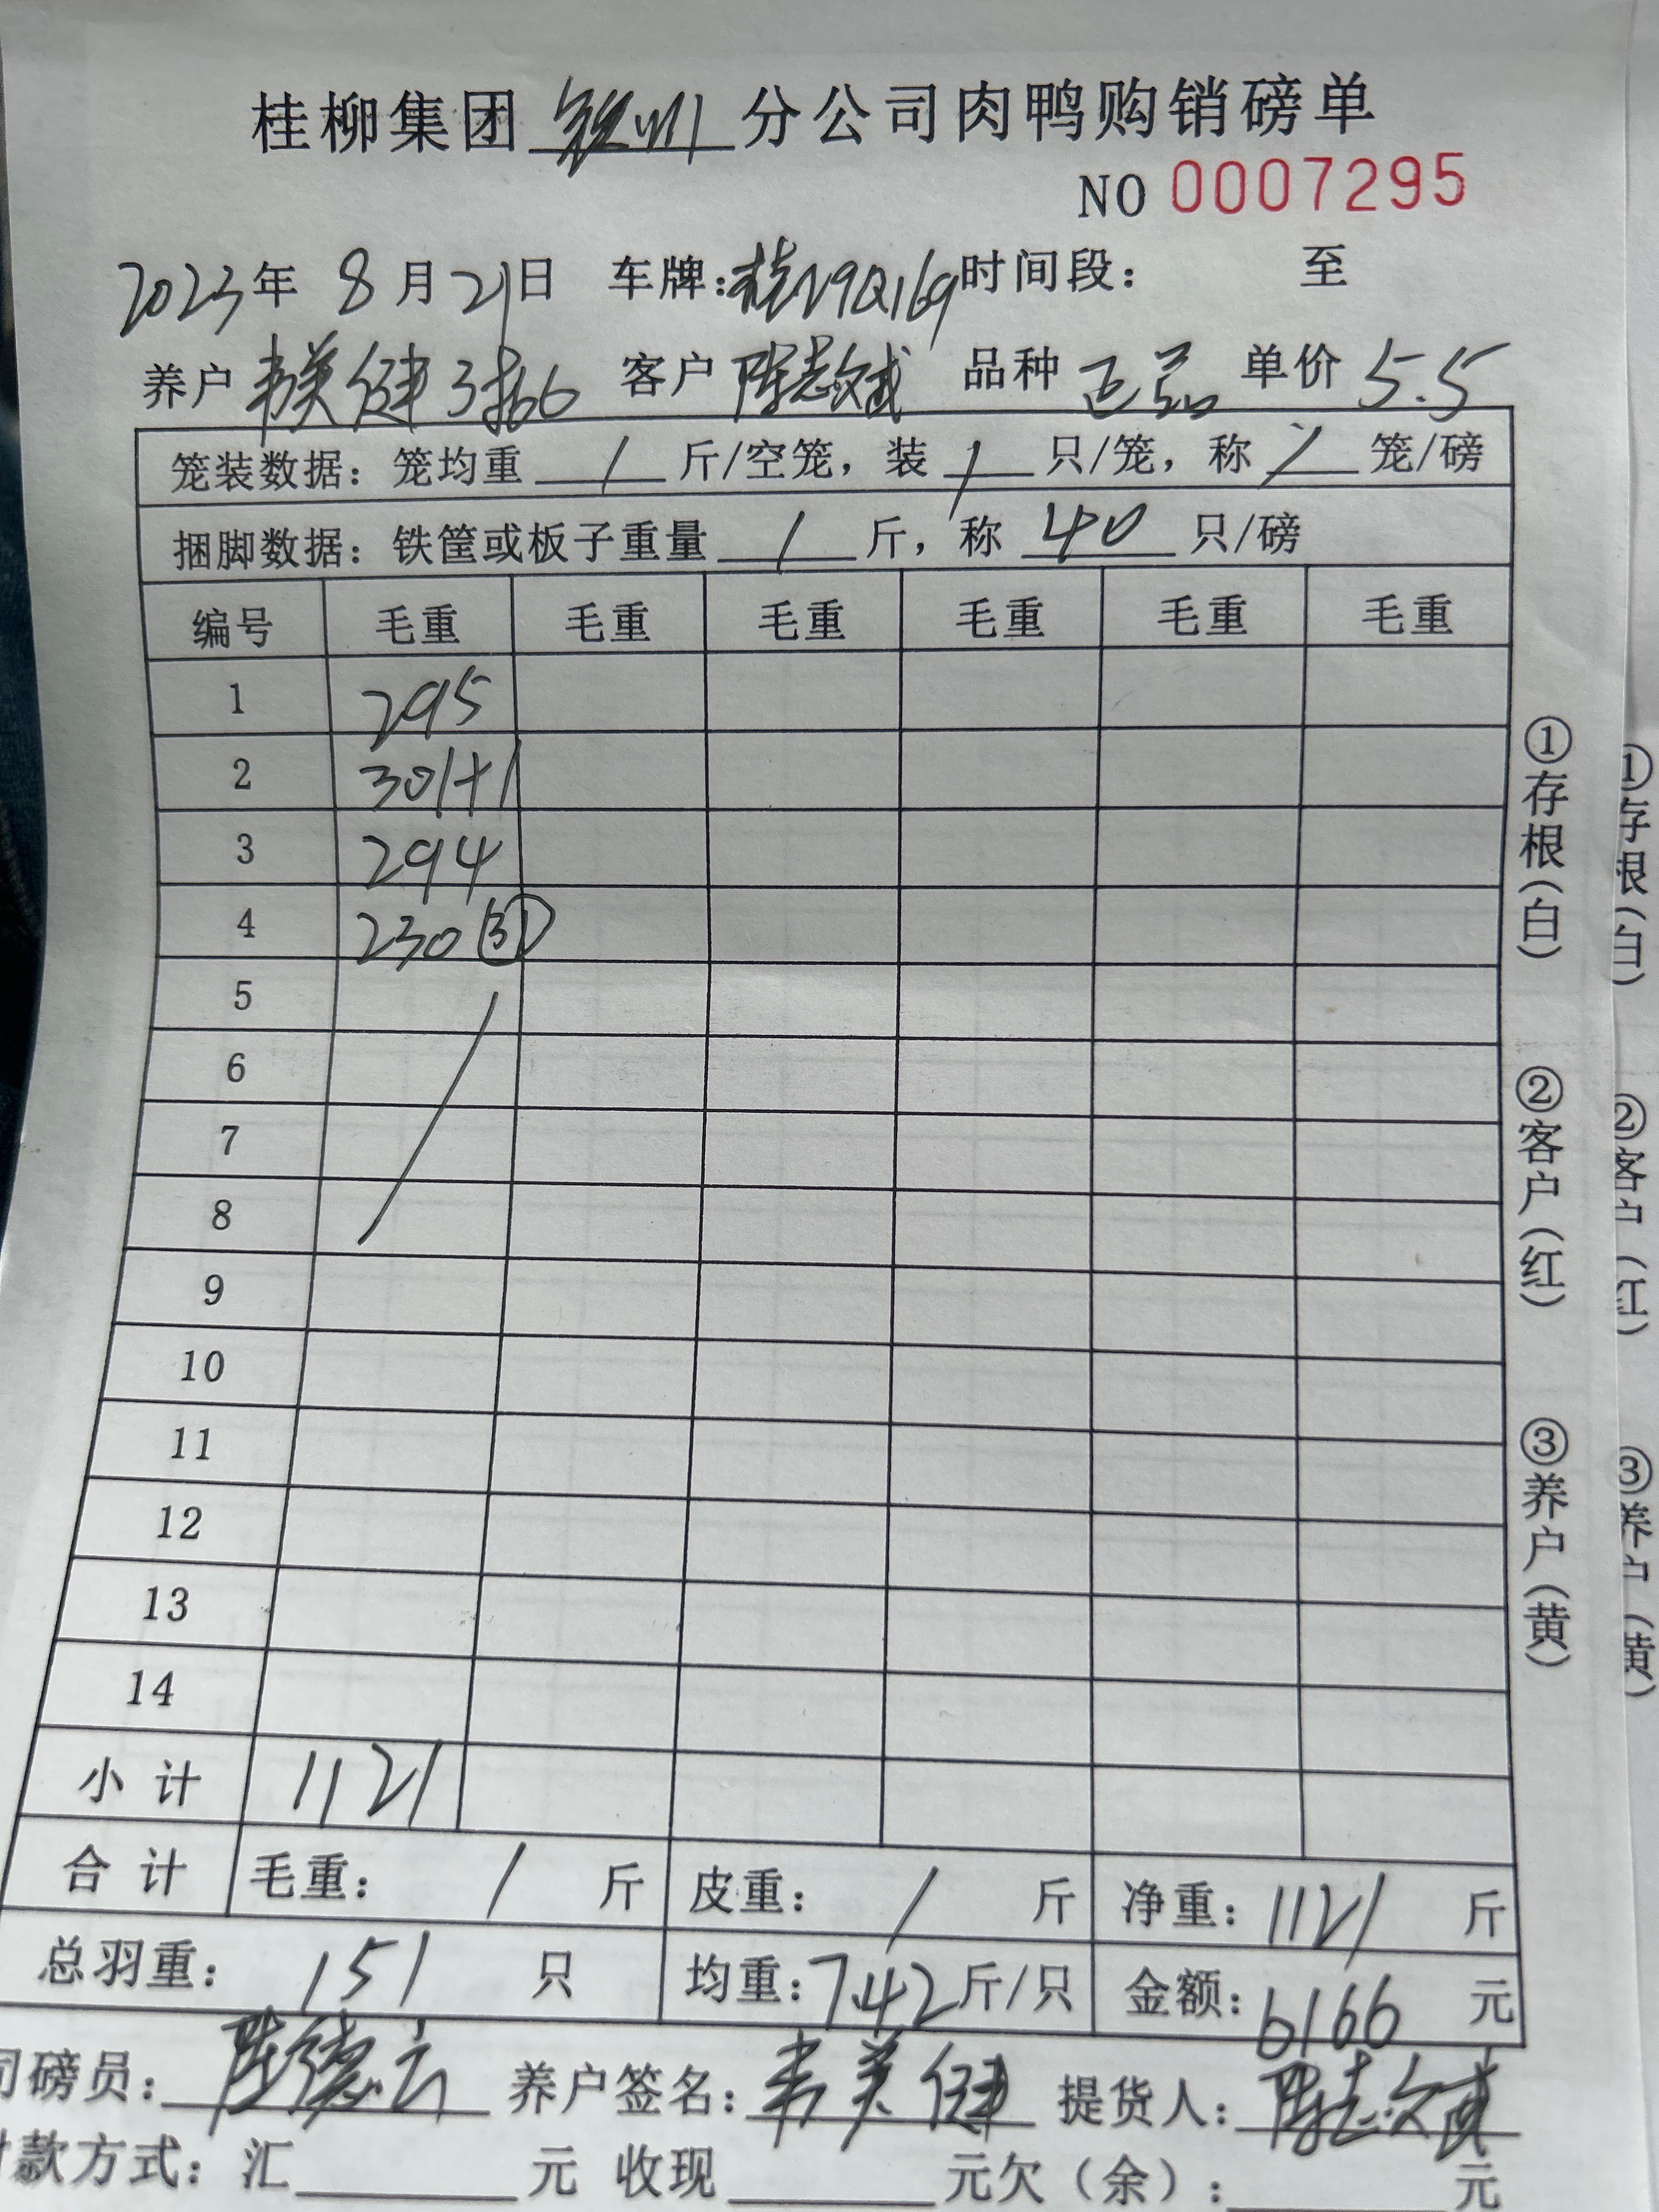 桂柳集团 钦州 分公司肉鸭购销磅单
NO 0007295
2023年 8月21日 车牌:桂N9Q169 时间段: 至
养户 韦美健 客户 陈志斌 品种 正品 单价 5.5
笼装数据: 笼均重 / 斤/空笼, 装 / 只/笼, 称 / 笼/磅
捆脚数据: 铁筐或板子重量 / 斤, 称 40 只/磅
编号 毛重 毛重 毛重 毛重 毛重 毛重
1 295
2 301+1
3 294
4 230 (31)
5
6
7
8
9
10
11
12
13
14
小计 1121
合计 毛重: / 斤 皮重: / 斤 净重: 1121 斤
总羽重: 151 只 均重: 7.42 斤/只 金额: 6166 元
司磅员: 陈德云 养户签名: 韦美健 提货人: 陈志斌
付款方式: 汇 元 收现 元欠(余): 元
①存根(白) ②客户(红) ③养户(黄)
①存根(白) ②客户(红) ③养户(黄)